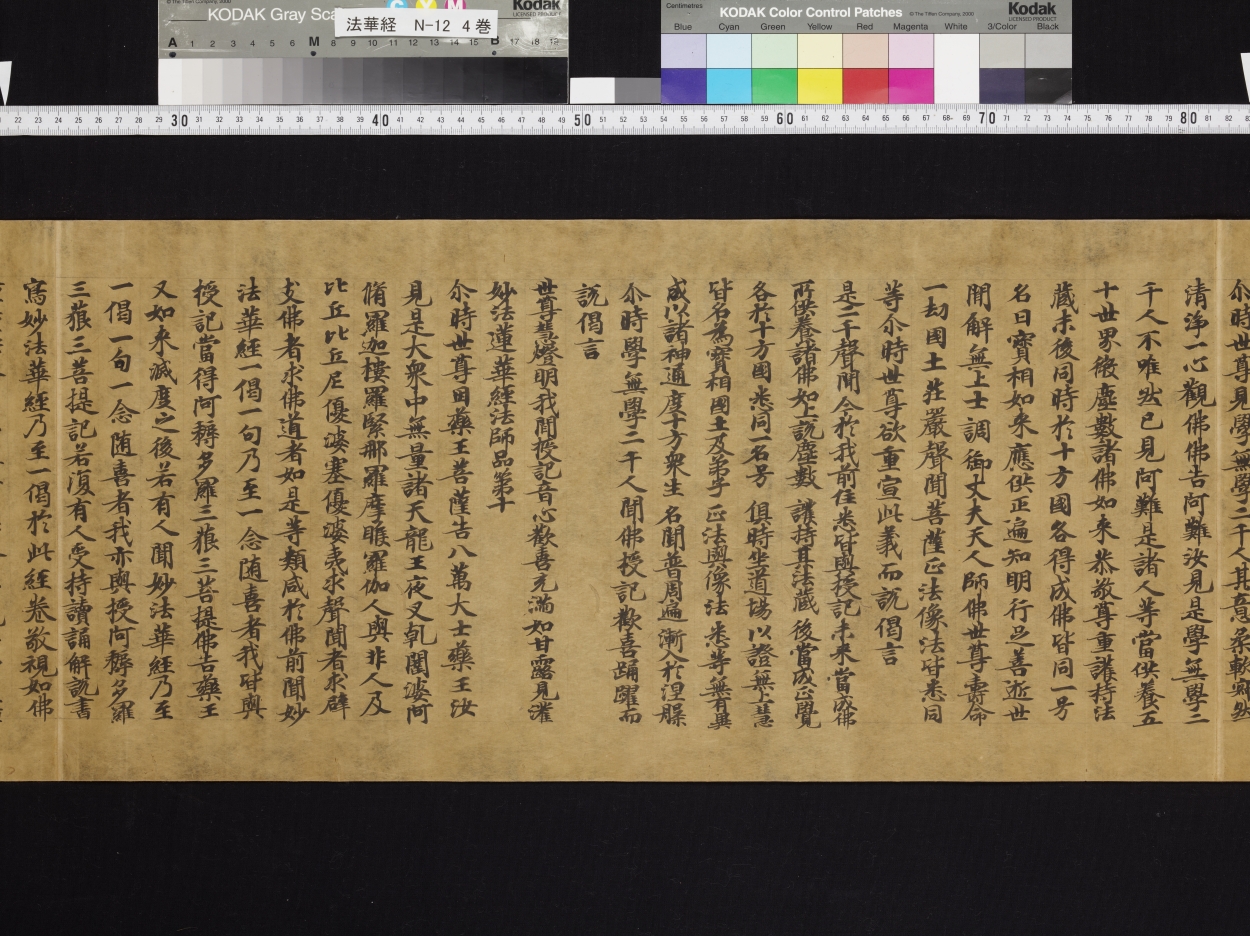 © The Tiffen Company, 2000
KODAK Gray Sca
C Y M
Kodak
LICENSED PRODUCT
法華経 N-12 4巻
A 1 2 3 4 5 6 M 7 8 9 10 11 12 13 14 15 B 17 18 19
Centimetres
KODAK Color Control Patches
© The Tiffen Company, 2000
Kodak
LICENSED PRODUCT
Blue Cyan Green Yellow Red Magenta White 3/Color Black
22 23 24 25 26 27 28 29 30 31 32 33 34 35 36 37 38 39 40 41 42 43 44 45 46 47 48 49 50 51 52 53 54 55 56 57 58 59 60 61 62 63 64 65 66 67 68 69 70 71 72 73 74 75 76 77 78 79 80 81 82
尒時世尊見學無學二千人其意柔軟寂然
清淨一心觀佛佛告阿難汝見是學無學二
千人不唯然已見阿難是諸人等當供養五
十世界微塵數諸佛如來恭敬尊重護持法
藏末後同時於十方國各得成佛皆同一号
名曰寶相如來應供正遍知明行足善逝世
間解無上士調御丈夫天人師佛世尊壽命
一劫國土莊嚴聲聞菩薩正法像法皆悉同
等尒時世尊欲重宣此義而說偈言
是二千聲聞 今於我前住 悉皆與授記 未來當成佛
所供養諸佛 如上說塵數 護持其法藏 後當成正覺
各於十方國 悉同一名号 俱時坐道場 以證無上慧
皆名為寶相 國土及弟子 正法與像法 悉等無有異
咸以諸神通 度十方衆生 名聞普周遍 漸入於涅槃
尒時學無學二千人聞佛授記歡喜踊躍而
說偈言
世尊慧燈明 我聞授記音 心歡喜充滿 如甘露見灌
妙法蓮華經法師品第十
尒時世尊因藥王菩薩告八萬大士藥王汝
見是大衆中無量諸天龍王夜叉乹闥婆阿
脩羅迦樓羅緊那羅摩睺羅伽人與非人及
比丘比丘尼優婆塞優婆夷求聲聞者求辟
支佛者求佛道者如是等類咸於佛前聞妙
法華經一偈一句乃至一念随喜者我皆與
授記當得阿耨多羅三藐三菩提佛告藥王
又如來滅度之後若有人聞妙法華經乃至
一偈一句一念随喜者我亦與授阿耨多羅
三藐三菩提記若復有人受持讀誦解說書
寫妙法華經乃至一偈於此經卷敬視如佛